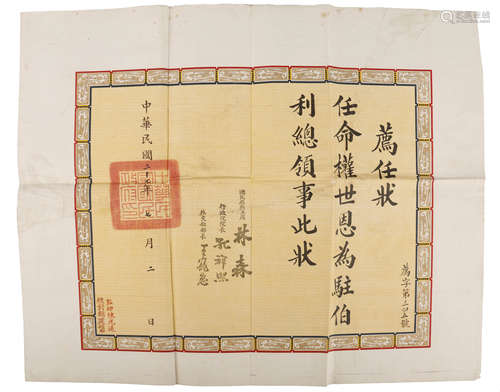 薦任狀
任命權世恩為駐伯
利總領事此狀
國民政府主席 林森
行政院院長 孔祥熙
外交部部長 王寵惠
中華民國二十七年 七月二日
薦字第二〇五號